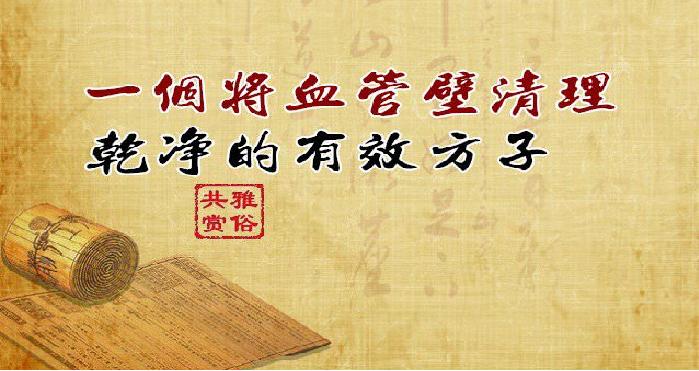 一個将血管壁清理
乾净的有效方子
雅俗
共赏